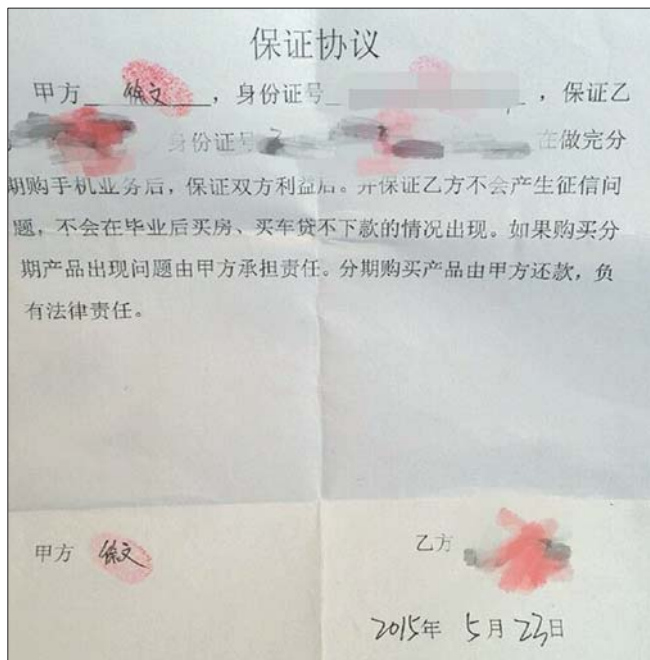 保证协议
甲方 徐文 ，身份证号 ，保证乙
身份证号 在做完分
期购手机业务后，保证双方利益后。并保证乙方不会产生征信问
题，不会在毕业后买房、买车贷不下款的情况出现。如果购买分
期产品出现问题由甲方承担责任。分期购买产品由甲方还款，负
有法律责任。
甲方 徐文 乙方
2015年 5月 23日